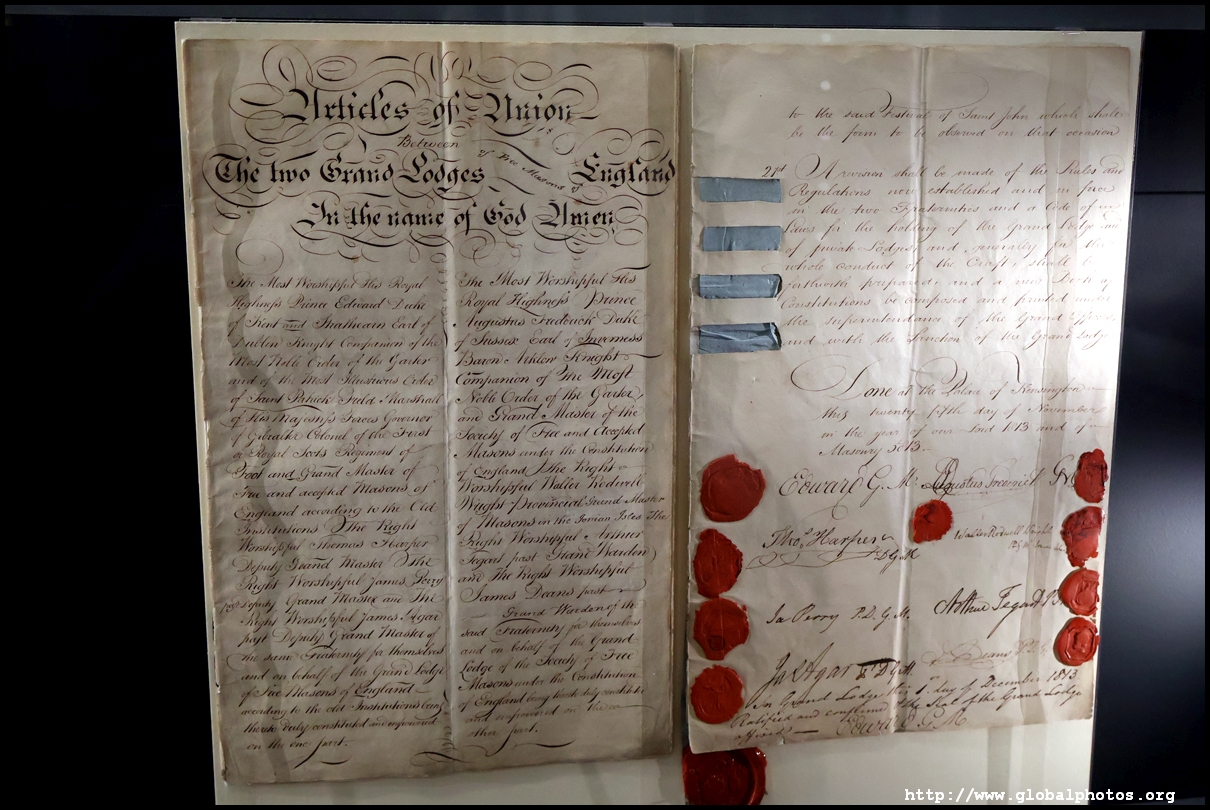 Articles of Union
Between
The two Grand Lodges of Free Masons of England
In the name of God Amen
The Most Worshipful His Royal
Highness Prince Edward Duke
of Kent and Strathearn Earl of
Dublin Knight Companion of the
Most Noble Order of the Garter
and of the Most Illustrious Order
of Saint Patrick Field Marshall
of His Majesty's Forces Governor
of Gibralter Colonel of the First
or Royal Scots Regiment of
Foot and Grand Master of
Free and accepted Masons of
England according to the Old
Institutions The Right
Worshipful Thomas Harper
Deputy Grand Master The
Right Worshipful James Perry
past Deputy Grand Master and The
Right Worshipful James Agar
past Deputy Grand Master of
the same Fraternity for themselves
and on behalf of the Grand Lodge
of Free Masons of England
according to the old Institutions being
thereto duly constituted and empowered
on the one part.
The Most Worshipful His
Royal Highness Prince
Augustus Frederick Duke
of Sussex Earl of Inverness
Baron Arklow Knight
Companion of The Most
Noble Order of the Garter
and Grand Master of the
Society of Free and Accepted
Masons under the Constitution
of England The Right
Worshipful Waller Rodwell
Wright Provincial Grand Master
of Masons in the Ionian Isles The
Right Worshipful Arthur
Tegart past Grand Warden
and The Right Worshipful
James Deans past
Grand Warden of the
said Fraternity for themselves
and on behalf of the Grand
Lodge of the Society of Free
Masons under the Constitution
of England being thereto duly constituted
and empowered on the
other part.
to the said Festival of Saint John which shall
be the form to be observed on that occasion
21st A revision shall be made of the Rules and
Regulations now established and in force
in the two Fraternities and a Code of
Laws for the holding of the Grand Lodge and
of private Lodges and generally for the
whole conduct of the Craft shall be
forthwith prepared and a new Book of
Constitutions be composed and printed under
the superintendance of the Grand Officers
and with the Sanction of the Grand Lodge
Done at the Palace of Kensington
this twenty fifth day of November
in the year of our Lord 1813 and of
Masonry 5813.
Edward G. M. Augustus Frederick G M
Thos Harper D G M
Waller Rodwell Wright
Ja Perry P. D. G. M. Arthur Tegart
Jas Agar P D G M.
In Grand Lodge this 1st day of December 1813
Ratified and confirmed & the Seal of the Grand Lodge
affixed Edward G. M
http://www.globalphotos.org